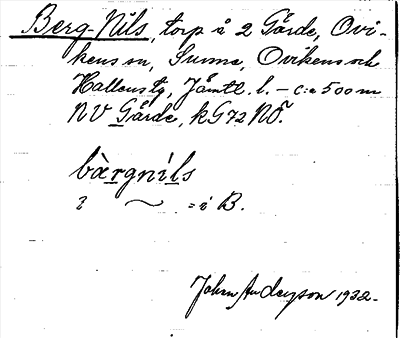 Berg-Nils, torp å 2 Gårde, Ovi-
kens sn, Sunne, Ovikens och
Hallens tg, Jämtl. l. – c:a 500 m
NV Gårde, k G 72 NÖ.
bàrgnìls
i ~ = i B.
Johan Anderson 1932.